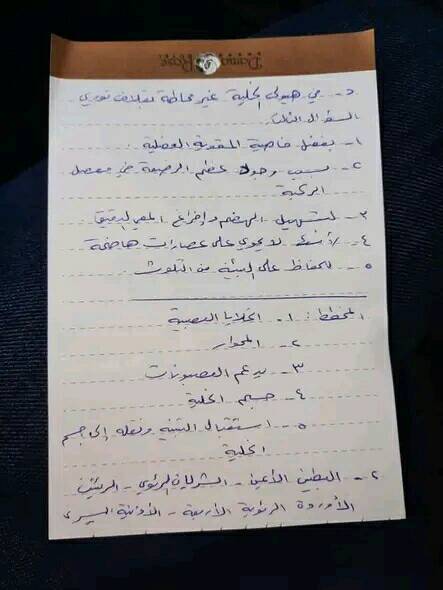 Damas Rose
د- في هيولى الخلية غير محاطة بغلاف نووي
السؤال الثالث:
١- بفضل خاصية المقوية العضلية
٢- بسبب وجود عظم الرضفة في مفصل
الركبة
٣- لتسهيل الهضم وإفراغ المعي الدقيق
٤- لأنه لا يحوي على عصارات هاضمة
٥- للحفاظ على البيئة من التلوث
المخطط: ١- الخلايا العصبية
٢- المحوار
٣- يدعم العصبونات
٤- جسم الخلية
٥- استقبال التنبيه ونقله إلى جسم
الخلية
٢- البطين الأيمن - الشريان الرئوي - الرئتين
الأوردة الرئوية الأربعة - الأذينة اليسرى